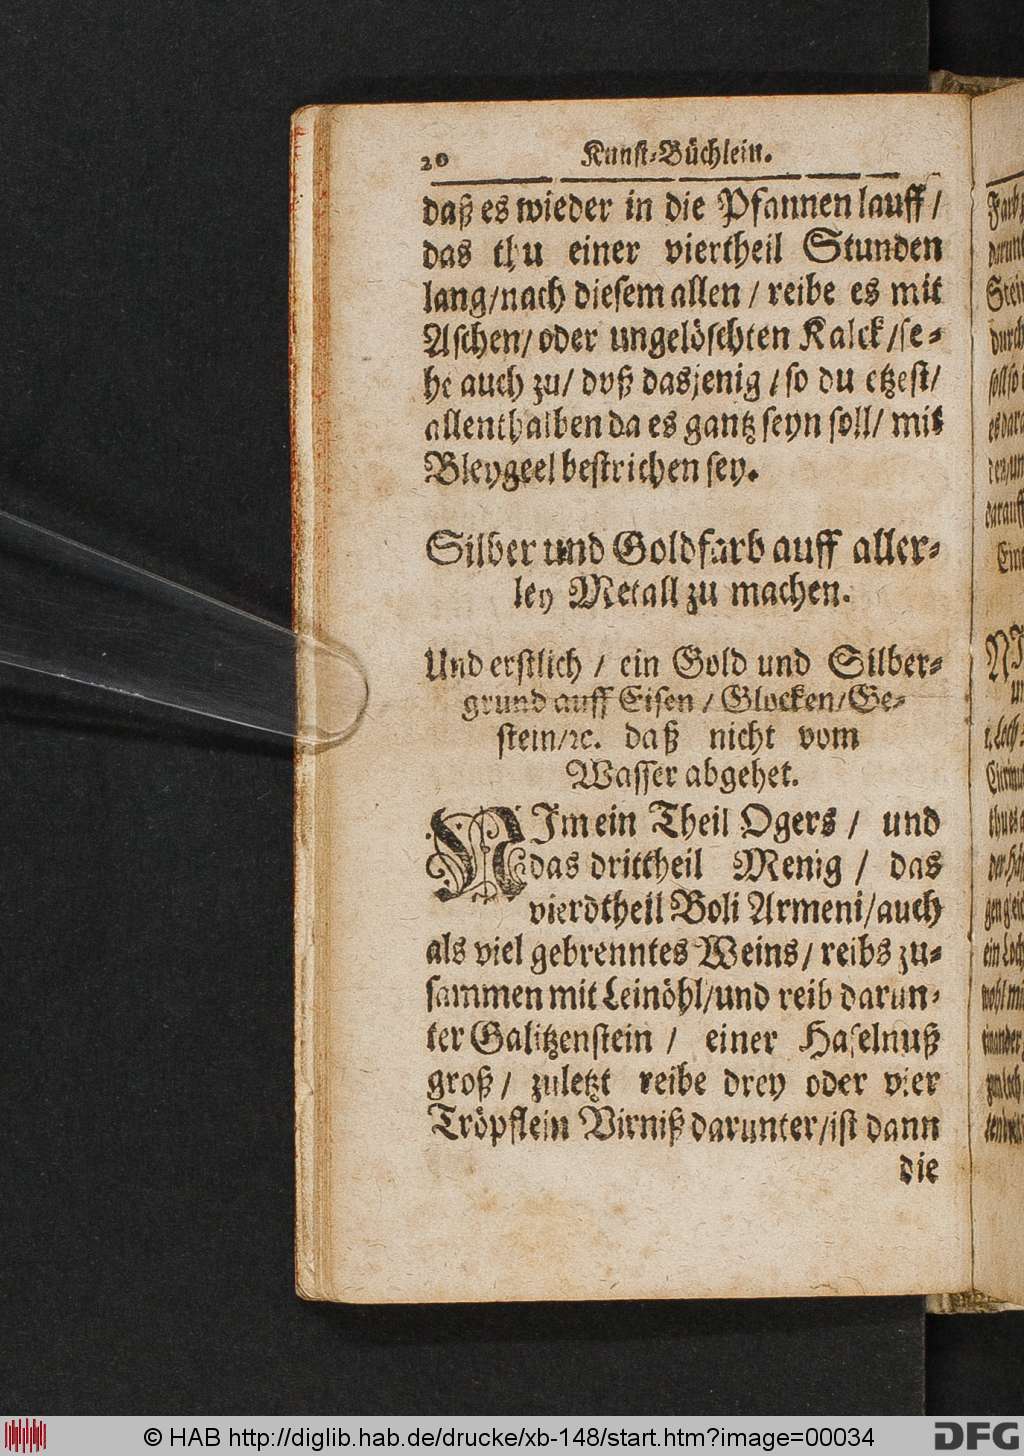 20 Kunst-Büchlein.
daß es wieder in die Pfannen lauff /
das thu einer viertheil Stunden
lang / nach diesem allen / reibe es mit
Aschen / oder ungelöschten Kalck / se-
he auch zu / doß dasjenig / so du etzest /
allenthalben da es gantz seyn soll / mit
Bleygeel bestrichen sey.
Silber und Goldfarb auff aller-
ley Metall zu machen.
Und erstlich / ein Gold und Silber-
grund auff Eisen / Glocken / Ge-
stein / ꝛc. daß nicht vom
Wasser abgehet.
NIm ein Theil Ogers / und
das drittheil Menig / das
vierdtheil Boli Armeni / auch
als viel gebrenntes Weins / reibs zu-
sammen mit Leinöhl / und reib darun-
ter Galitzenstein / einer Haselnuß
groß / zuletzt reibe drey oder vier
Tröpflein Virniß darunter / ist dann
die
© HAB http://diglib.hab.de/drucke/xb-148/start.htm?image=00034
DFG